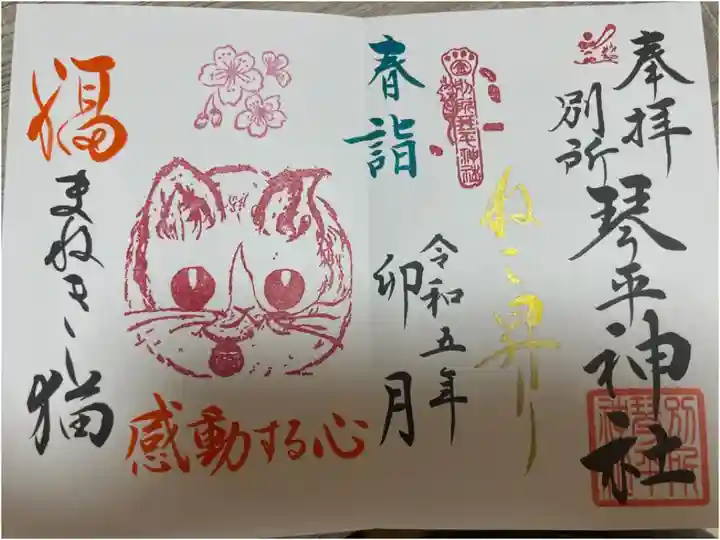 奉拝
別所
琴平神社
ねこ昇り
令和五年
卯月
春詣
福
まねき猫
感動する心